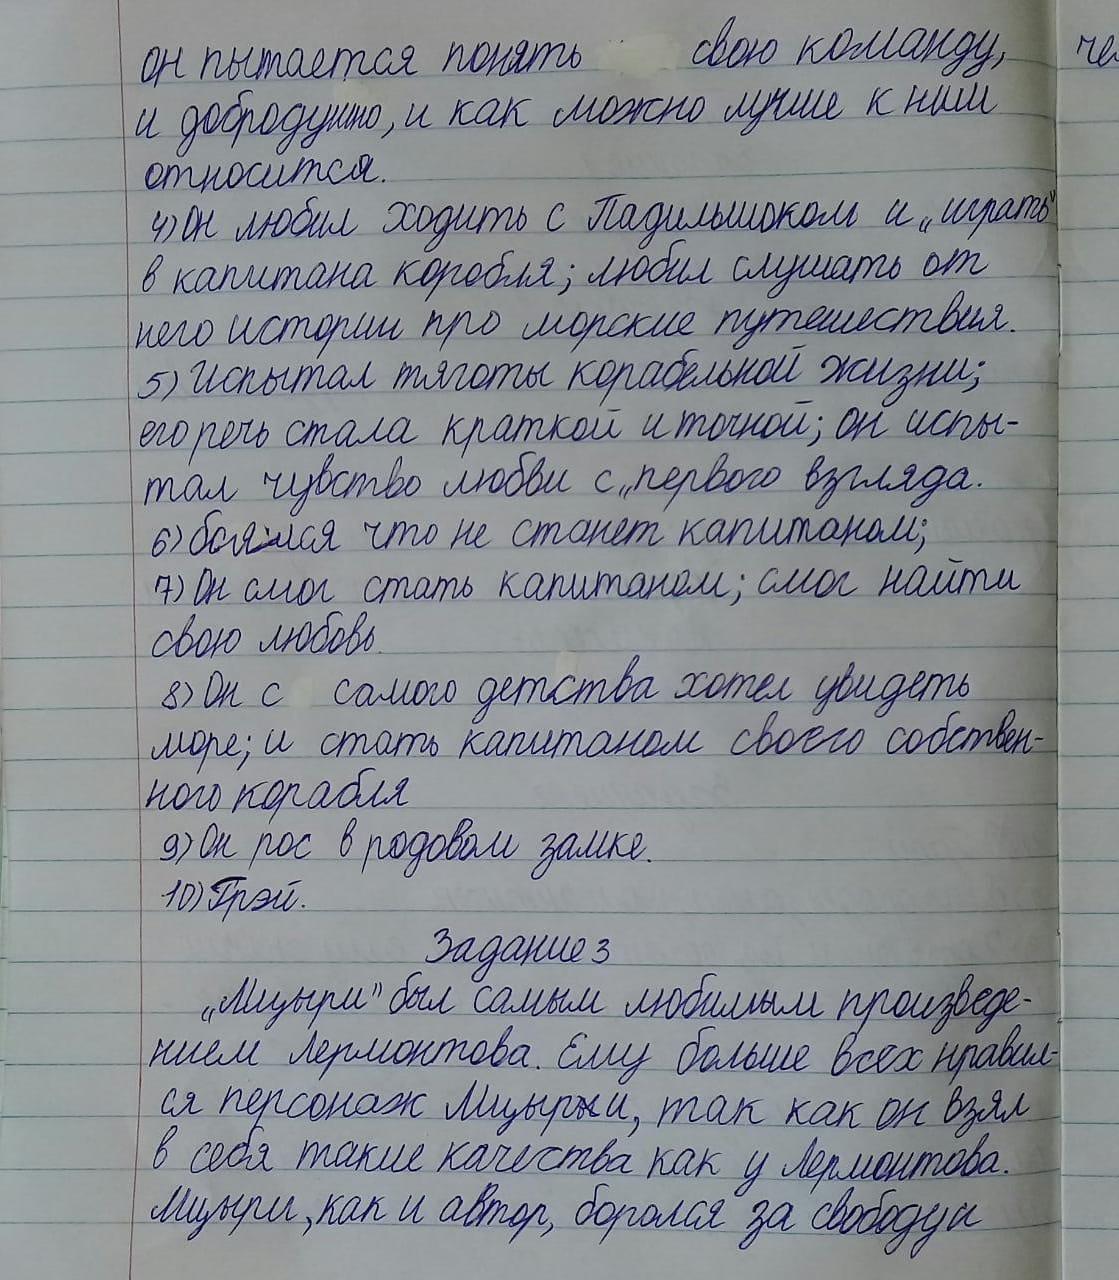 он пытается понять свою команду,
и добродушно, и как можно лучше к ним
относится.
4) Он любил ходить с Падильшоком и „играть"
в капитана коробля; любил слушать от
него истории про морские путешествия.
5) Испытал тяготы корабельной жизни;
его речь стала краткой и точной; он испы-
тал чувство любви с „первого взгляда.
6) боялся что не станет капитаном;
7) Он смог стать капитаном; смог найти
свою любовь.
8) Он с самого детства хотел увидеть
море; и стать капитаном своего собствен-
ного корабля
9) Он рос в родовом замке.
10) Грэй.
Задание 3
„Мцыри" был самым любимым произведе-
нием Лермонтова. Ему больше всех нравил-
ся персонаж Мцыри, так как он взял
в себя такие качества как у Лермонтова.
Мцыри, как и автор, боролся за свободу и